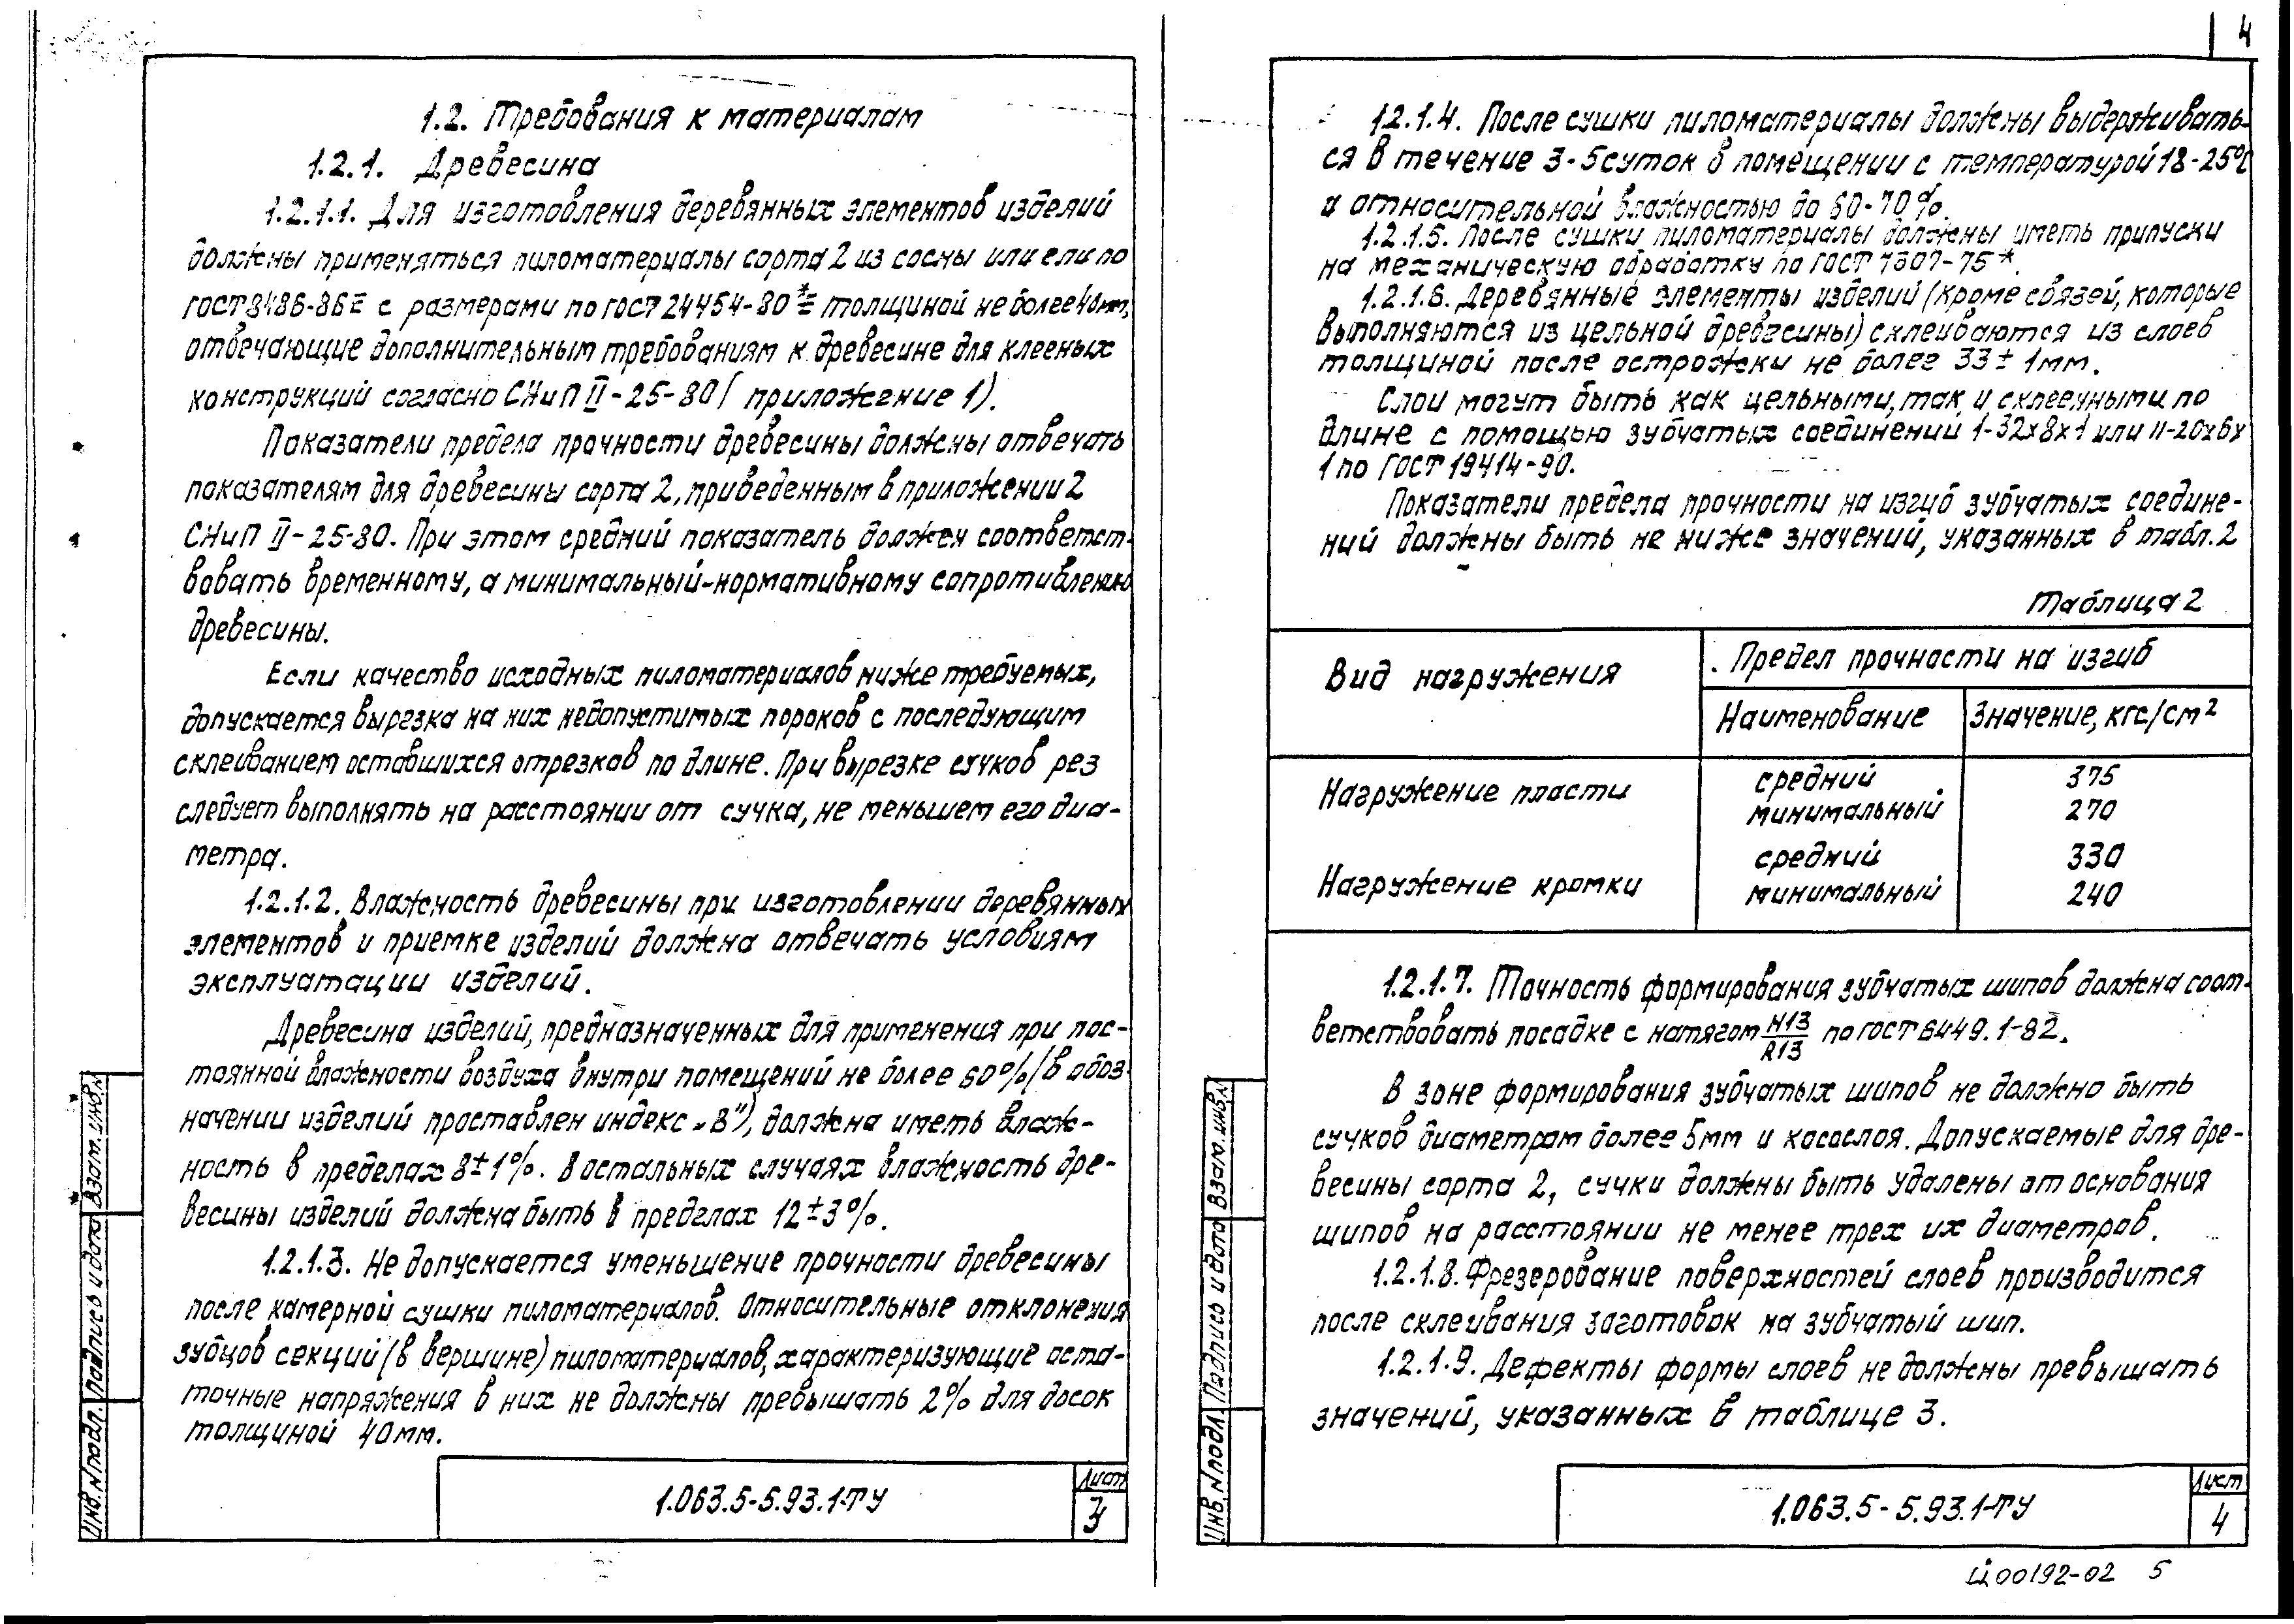 1.2. Требования к материалам
1.2.1. Древесина
1.2.1.1. Для изготовления деревянных элементов изделий
должны применяться пиломатериалы сорта 2 из сосны или ели по
ГОСТ 8486-86Е с размерами по ГОСТ 24454-80*Е толщиной не более 40мм,
отвечающие дополнительным требованиям к древесине для клееных
конструкций согласно СНиП II-25-80 (приложение 1).
Показатели предела прочности древесины должны отвечать
показателям для древесины сорта 2, приведенным в приложении 2
СНиП II-25-80. При этом средний показатель должен соответст-
вовать временному, а минимальный-нормативному сопротивлению
древесины.
Если качество исходных пиломатериалов ниже требуемых,
допускается вырезка на них недопустимых пороков с последующим
склеиванием оставшихся отрезков по длине. При вырезке сучков рез
следует выполнять на расстоянии от сучка, не меньшем его диа-
метра.
1.2.1.2. Влажность древесины при изготовлении деревянных
элементов и приемке изделий должна отвечать условиям
эксплуатации изделий.
Древесина изделий, предназначенных для применения при пос-
тоянной влажности воздуха внутри помещений не более 60% (в обоз-
начении изделий проставлен индекс „В"), должна иметь влаж-
ность в пределах 8±1%. В остальных случаях влажность дре-
весины изделий должна быть в пределах 12±3%.
1.2.1.3. Не допускается уменьшение прочности древесины
после камерной сушки пиломатериалов. Относительные отклонения
зубцов секций (в вершине) пиломатериалов, характеризующие оста-
точные напряжения в них не должны превышать 2% для досок
толщиной 40мм.
Инв. N подл. Подпись и дата Взам. инв. N
1.063.5-5.93.1-ТУ
Лист
3
4
1.2.1.4. После сушки пиломатериалы должны выдерживать-
ся в течение 3-5 суток в помещении с температурой 18-25°С
и относительной влажностью до 60-70%.
1.2.1.5. После сушки пиломатериалы должны иметь припуски
на механическую обработку по ГОСТ 7307-75*.
1.2.1.6. Деревянные элементы изделий (кроме связей, которые
выполняются из цельной древесины) склеиваются из слоев
толщиной после острожки не более 33±1мм.
Слои могут быть как цельными, так и склееными по
длине с помощью зубчатых соединений I-32х8х1 или II-20х6х
1 по ГОСТ 19414-90.
Показатели предела прочности на изгиб зубчатых соедине-
ний должны быть не ниже значений, указанных в табл. 2
Таблица 2
Вид нагружения
Предел прочности на изгиб
Наименование Значение, кгс/см²
Нагружение пласти
средний 375
минимальный 270
Нагружение кромки
средний 330
минимальный 240
1.2.1.7. Точность формирования зубчатых шипов должна соот-
ветствовать посадке с натягом H13/k13 по ГОСТ 6449.1-82.
В зоне формирования зубчатых шипов не должно быть
сучков диаметром более 5мм и косослоя. Допускаемые для дре-
весины сорта 2, сучки должны быть удалены от основания
шипов на расстоянии не менее трех их диаметров.
1.2.1.8. Фрезерование поверхностей слоев производится
после склеивания заготовок на зубчатый шип.
1.2.1.9. Дефекты формы слоев не должны превышать
значений, указанных в таблице 3.
Инв. N подл. Подпись и дата Взам. инв. N
1.063.5-5.93.1-ТУ
Лист
4
Ц00192-02 5